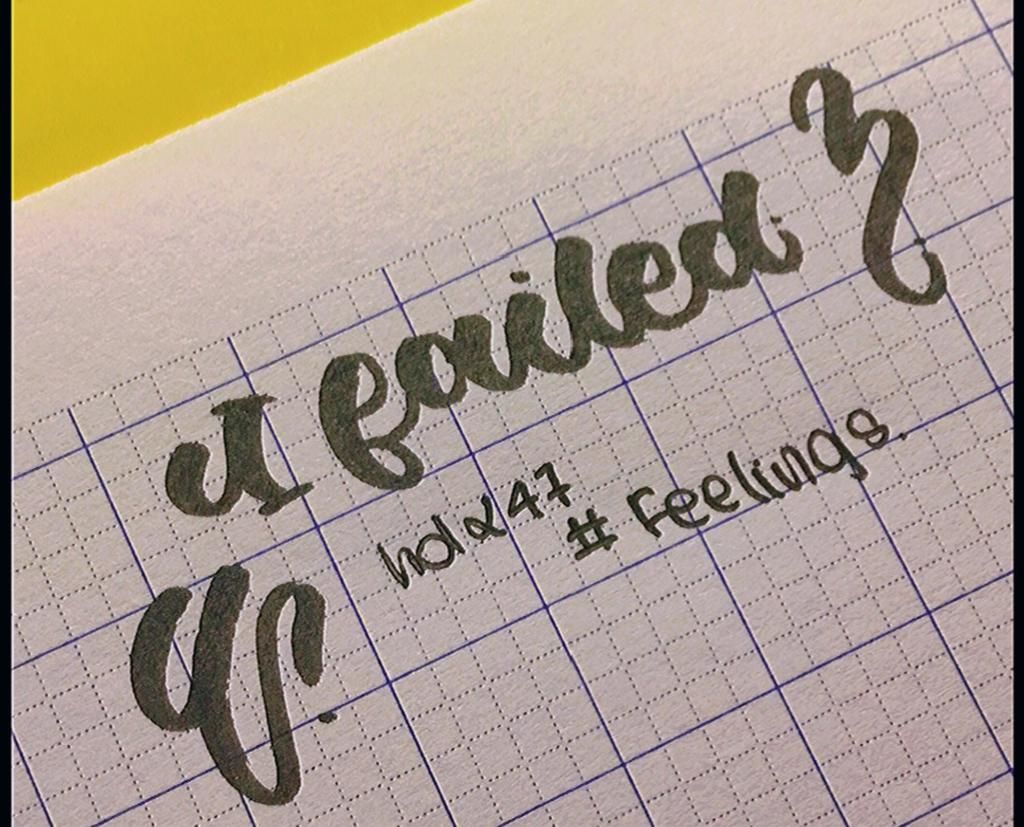 I failed
hold47
# Feelings.